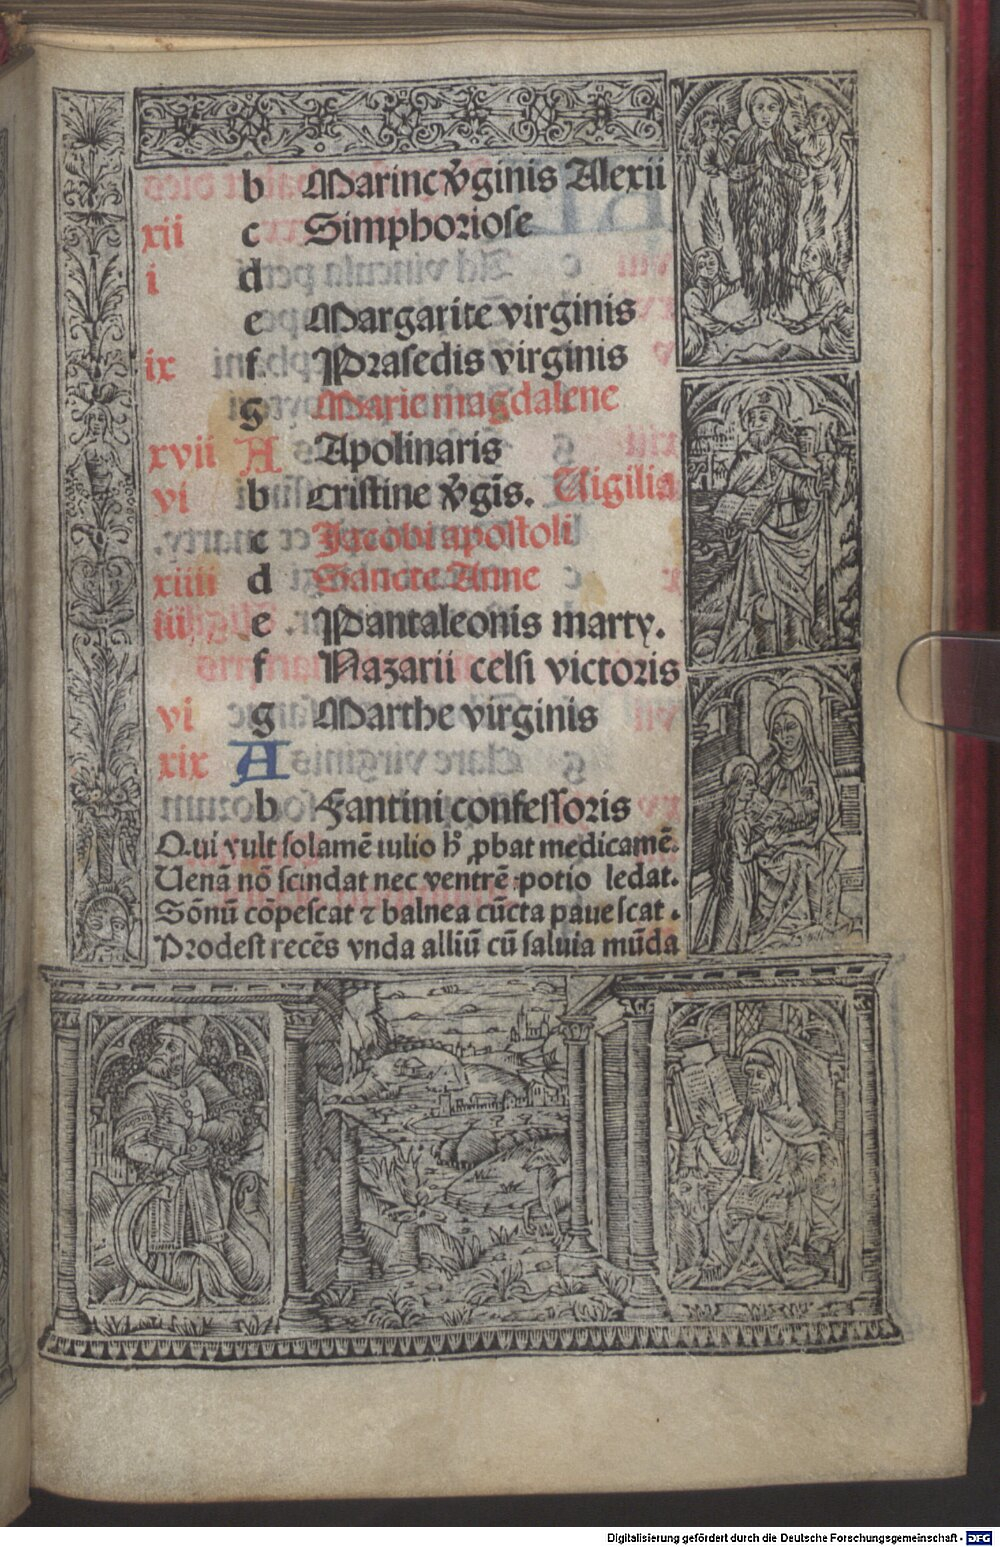 b Marine v̄ginis Alexii
xii c Simphoriose
i d
e Margarite virginis
ix f Praſedis virginis
g Marie magdalene
xvii A Apolinaris
vi b criſtine v̄gīs. Uigilia
c Jacobi apoſtoli
xiiii d Sancte Anne
e Pantaleonis marty.
f Nazarii celſi victoris
vi g Marthe virginis
xix A
b Fantini confeſſoris
Qui vult ſolamē iulio h̄ ꝓbat medicamē.
Uenā nō ſcindat nec ventrē potio ledat.
Sōnū cōpeſcat ⁊ balnea cūcta paueſcat.
Prodeſt recēs vnda alliū cū ſaluia mūda
Digitalisierung gefördert durch die Deutsche Forschungsgemeinschaft - DFG